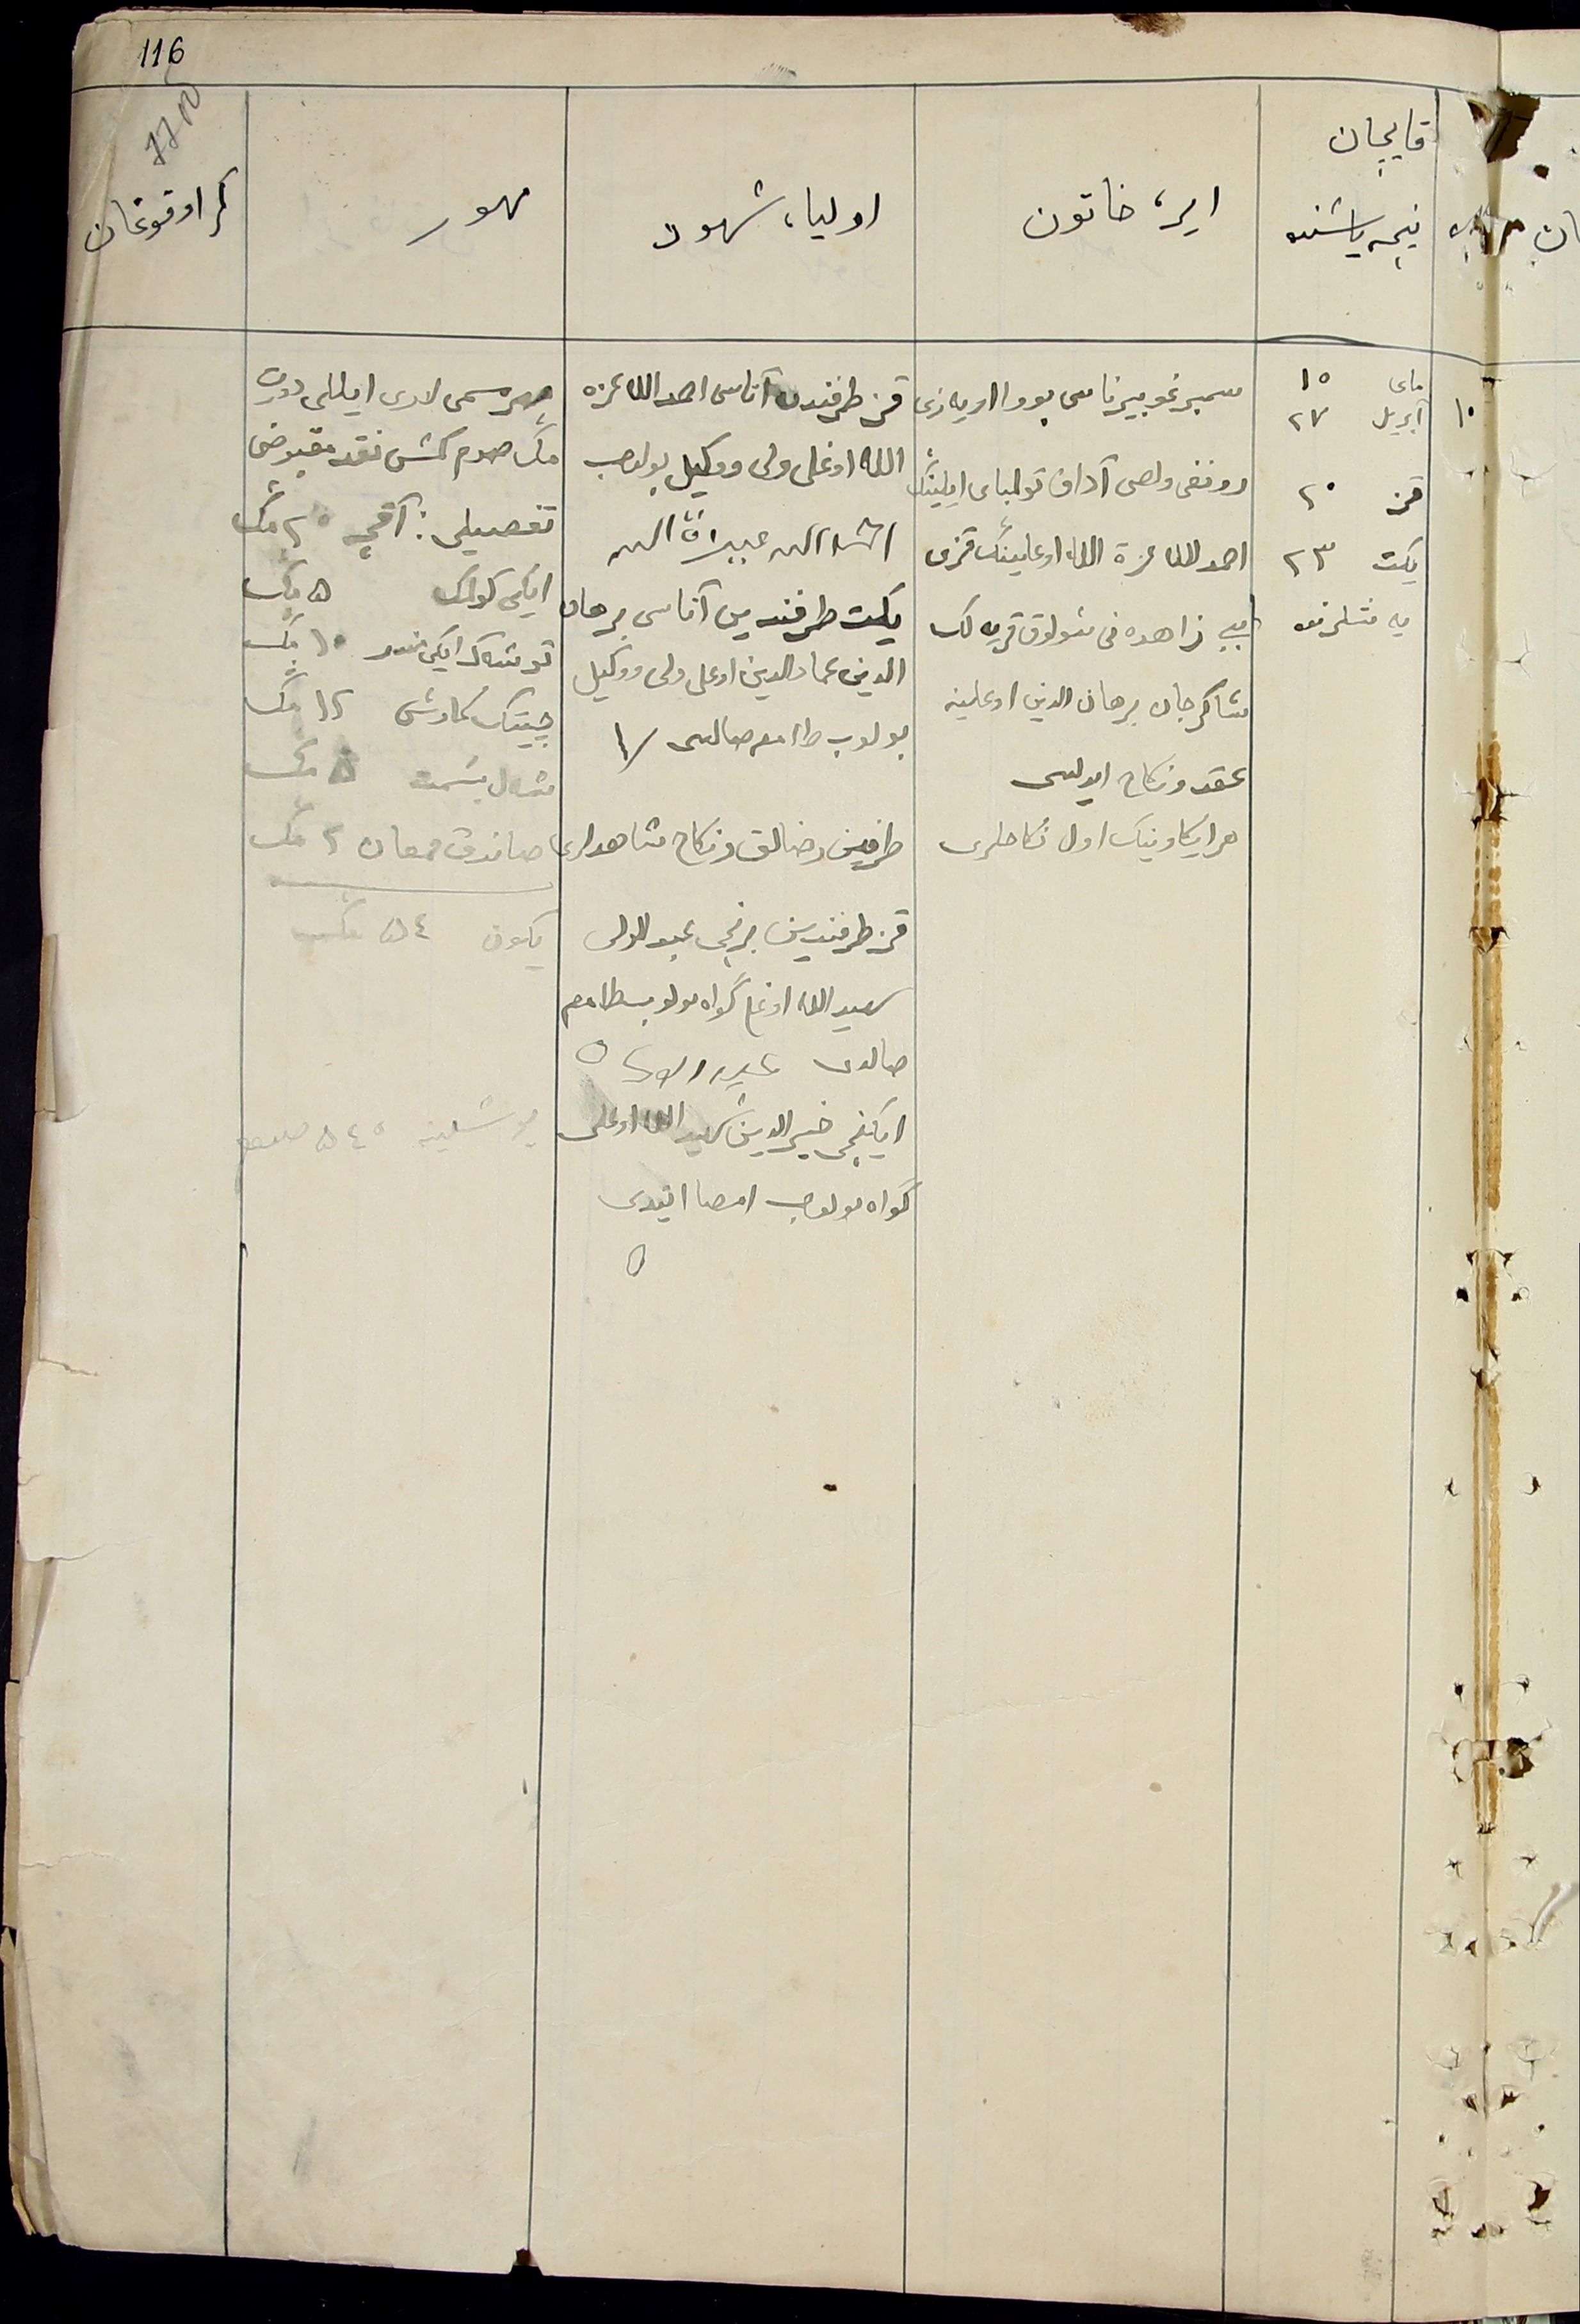 116
قایچان
نیچه یاشنده
ایر، خاتون
اولیاء، شهود
مهور
کم اوقوغان
١٠
مای ١٠
آپریل ٢٧
قز ٢٠
یکت ٢٣
یه شلرنده
سمبر غوبیرناسی بووا اویه زی
رونغی ولصی آداق تولمبای ایلینڭ
احمد الله عزة الله اوغلینڭ قزی
بیبی زاهده نی شولوق قریه لک
شاکرجان برهان الدین اوغلینه
عقد و نکاح ایدلدی
هر ایکاوینک اول نکاحلری
قز طرفندن آتاسی احمد الله عزة
الله اوغلی ولی و وکیل بولوب
یکت طرفندین آتاسی برهان
الدین عماد الدین اوغلی ولی و وکیل
بولوب طامغه صالدی
طرفین رضالق و نکاح شاهدلری
قز طرفندین برنچی عبد الولی
سعید الله اوغلی گواه بولوب طامغه
صالدی
ایکنچی خیر الدین شهید الله اوغلی
گواه بولوب امضا ایتدی
مهر مسمی لاری ایللی دورت
مڭ صوم کمش نقد مقبوضی
تفصیلی: آقچه ٢٠ مڭ
ایکی کولمک ٥ مڭ
توشک ایکی مندر ١٠ مڭ
چیتک کاوش ١٢ مڭ
شال بیسمت ٥ مڭ
صاندق صمعان ٢ مڭ
یکون ٥٤ مڭ